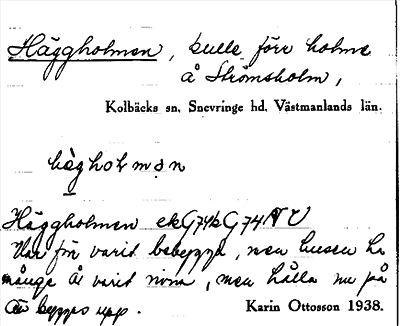 Häggholmen, kulle förr holme
å Strömsholm,
Kolbäcks sn. Snevringe hd. Västmanlands län.
hägholmən
Häggholmen ek G74b G74 NV
Har förr varit bebyggd, men husen ha
många år varit men hålla nu på
att byggas upp.
Karin Ottosson 1938.